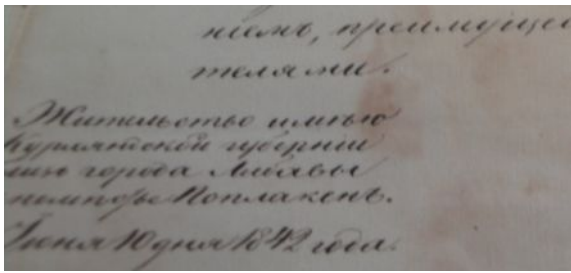 ніемъ, преимуще
телями.
Жительство имѣю
Курляндской губерніи
города Либавы
Поплакенъ.
Іюня 10 дня 1842 года.